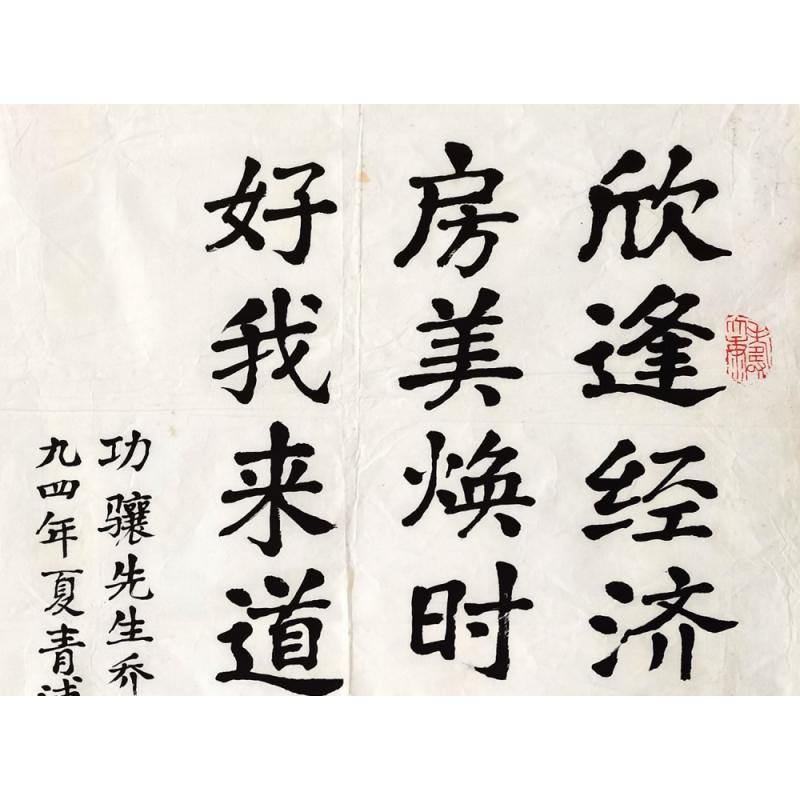 欣逢经济
房美焕时
好我来道
功骧先生乔
九四年夏青浦